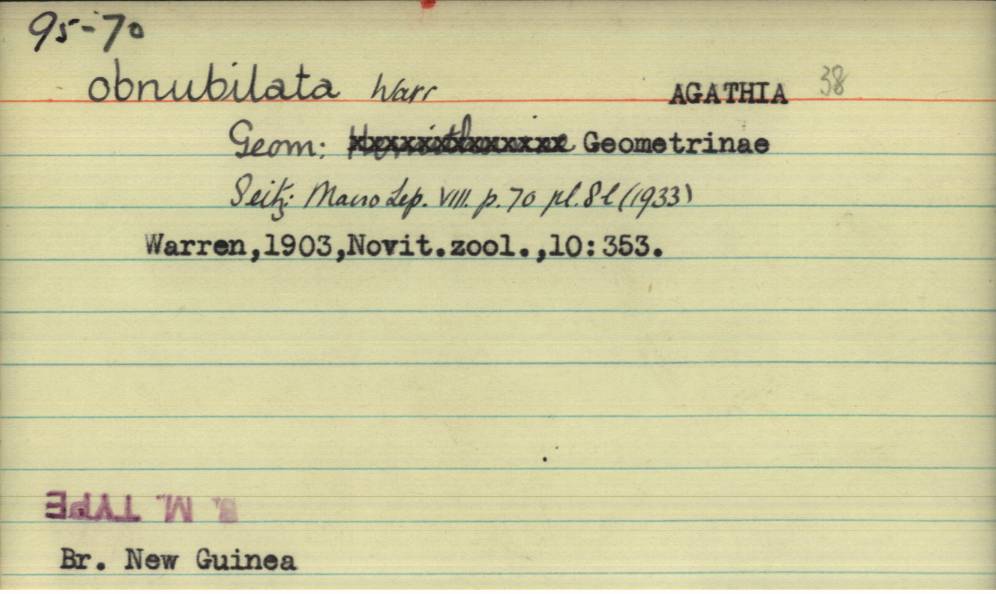 95-70
obnubilata Warr AGATHIA 38
Geom: Geometrinae
Seitz: Macro Lep. VIII. p. 70 pl. 8 l (1933)
Warren,1903,Novit.zool.,10:353.
B. M. TYPE
Br. New Guinea